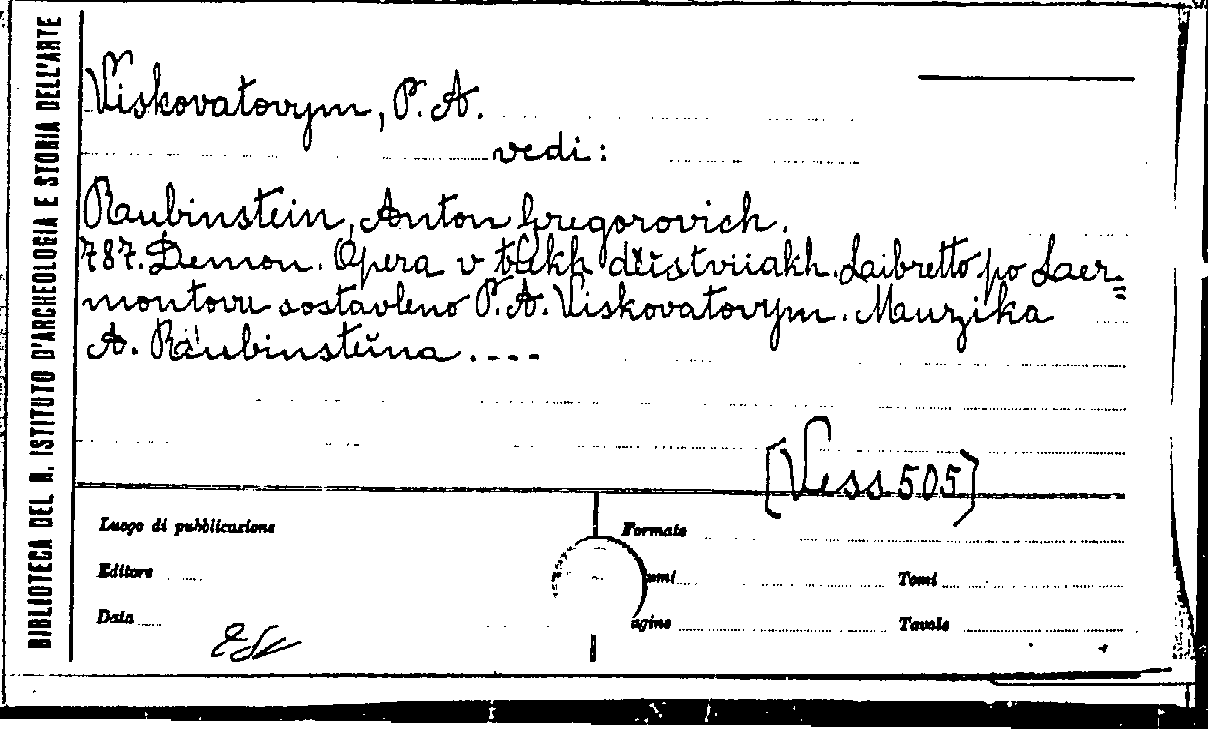 BIBLIOTECA DEL R. ISTITUTO D'ARCHEOLOGIA E STORIA DELL'ARTE
Viskovatovym, P. A.
vedi:
Raubinstein, Anton Gregorovich.
787. Demon. Opera v dĭĭstviiakh. Laibretto po Laer=
montovu sostavleno P. A. Viskovatovym. Muuzika
A. Raubinsteĭna. ----
[Vess 505]
Luogo di pubblicazione
Formato
Editore
umi
Tomi
Data
agine
Tavole